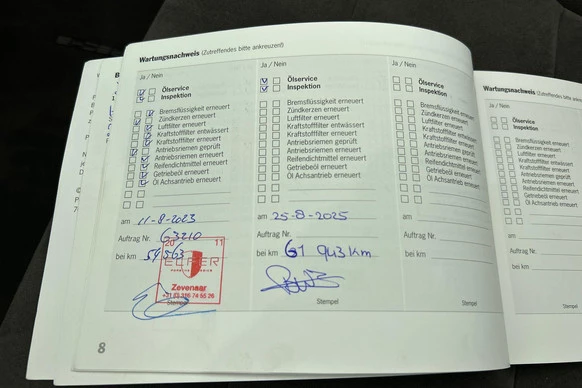 Wartungsnachweis (Zutreffendes bitte ankreuzen!)
Ja / Nein
Ölservice
Inspektion
Bremsflüssigkeit erneuert
Zündkerzen erneuert
Luftfilter erneuert
Kraftstofffilter entwässert
Kraftstofffilter erneuert
Antriebsriemen geprüft
Antriebsriemen erneuert
Reifendichtmittel erneuert
Getriebeöl erneuert
Öl Achsantrieb erneuert
am 11-8-2023
Auftrag Nr. 63210
bei km
20 11
Zevenaar
Stempel
8
Ja / Nein
Ölservice
Inspektion
Bremsflüssigkeit erneuert
Zündkerzen erneuert
Luftfilter erneuert
Kraftstofffilter entwässert
Kraftstofffilter erneuert
Antriebsriemen geprüft
Antriebsriemen erneuert
Reifendichtmittel erneuert
Getriebeöl erneuert
Öl Achsantrieb erneuert
am 25-8-2025
Auftrag Nr.
bei km 61 943 km
Stempel
Ja / Nein
Ölservice
Inspektion
Bremsflüssigkeit erneuert
Zündkerzen erneuert
Luftfilter erneuert
Kraftstofffilter entwässert
Kraftstofffilter erneuert
Antriebsriemen geprüft
Antriebsriemen erneuert
Reifendichtmittel erneuert
Getriebeöl erneuert
Öl Achsantrieb erneuert
am
Auftrag Nr.
bei km
Stempel
Wartungsnachweis (Zutreffendes bitte
Ja / Nein
Ölservice
Inspektion
Bremsflüssigkeit erneuert
Zündkerzen erneuert
Luftfilter erneuert
Kraftstofffilter entwässert
Kraftstofffilter erneuert
Antriebsriemen geprüft
Antriebsriemen erneuert
Reifendichtmittel erneuert
Getriebeöl erneuert
Öl Achsantrieb erneuert
am
Auftrag Nr.
bei km
Stempel